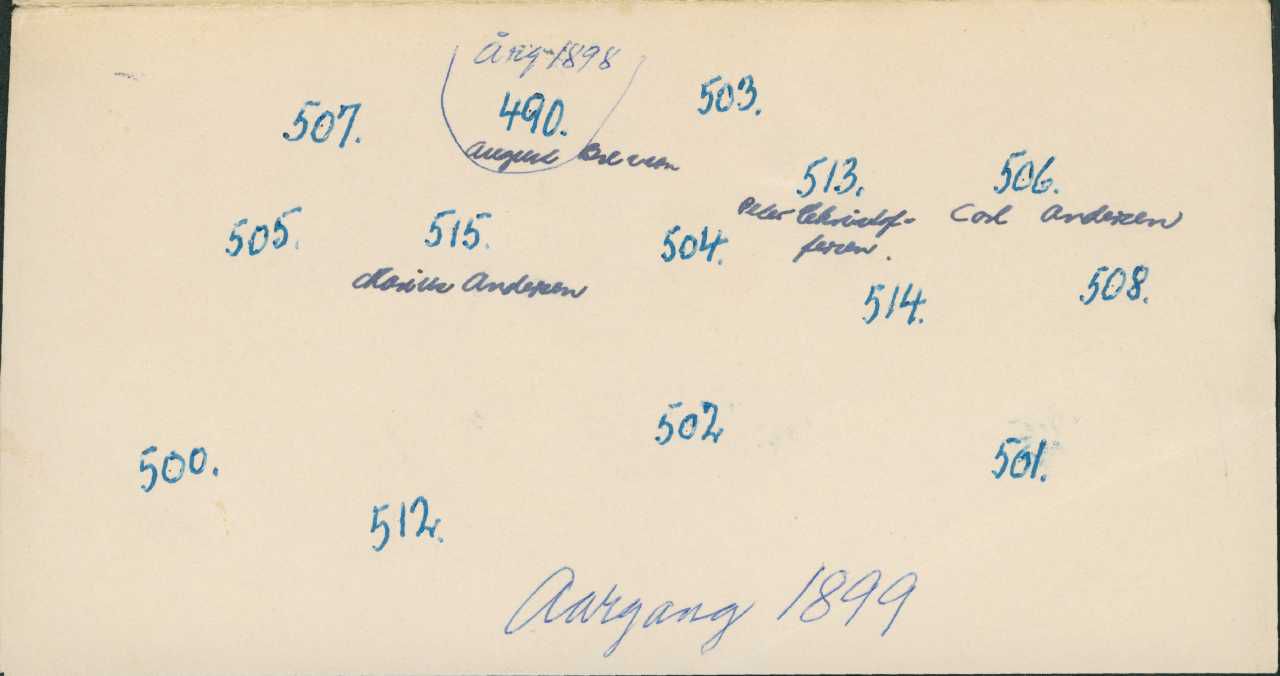 Årg. 1898
507.
490.
503.
August
513.
506.
Peter Christof-
fersen.
Carl Andersen
505.
515.
504.
Marius Andersen
514.
508.
502
500.
501.
512.
Aargang 1899